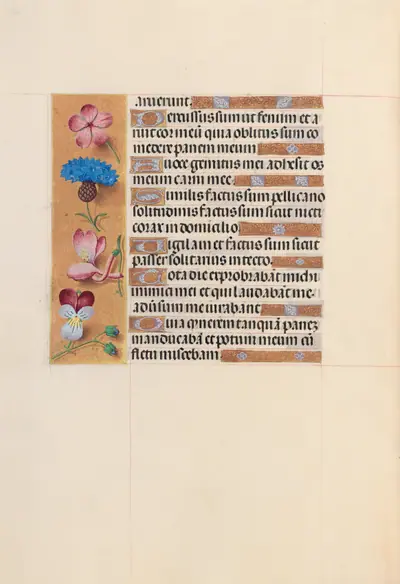 aruerunt.
Percussus sum ut fenum et a
ruit cor meũ quia oblitus sum co
medere panem meum
A uoce gemitus mei adhesit os
meum carni mee.
Similis factus sum pellicano
solitudinis factus sum sicut nicti
corax in domicilio
Uigilaui et factus sum sicut
passer solitarius in tecto.
Tota die exprobrabãt michi
inimici mei et qui laudabãt me
aduersum me iurabant
Quia cinerem tanquã panẽ
manducabã et potum meum cũ
fletu miscebam.